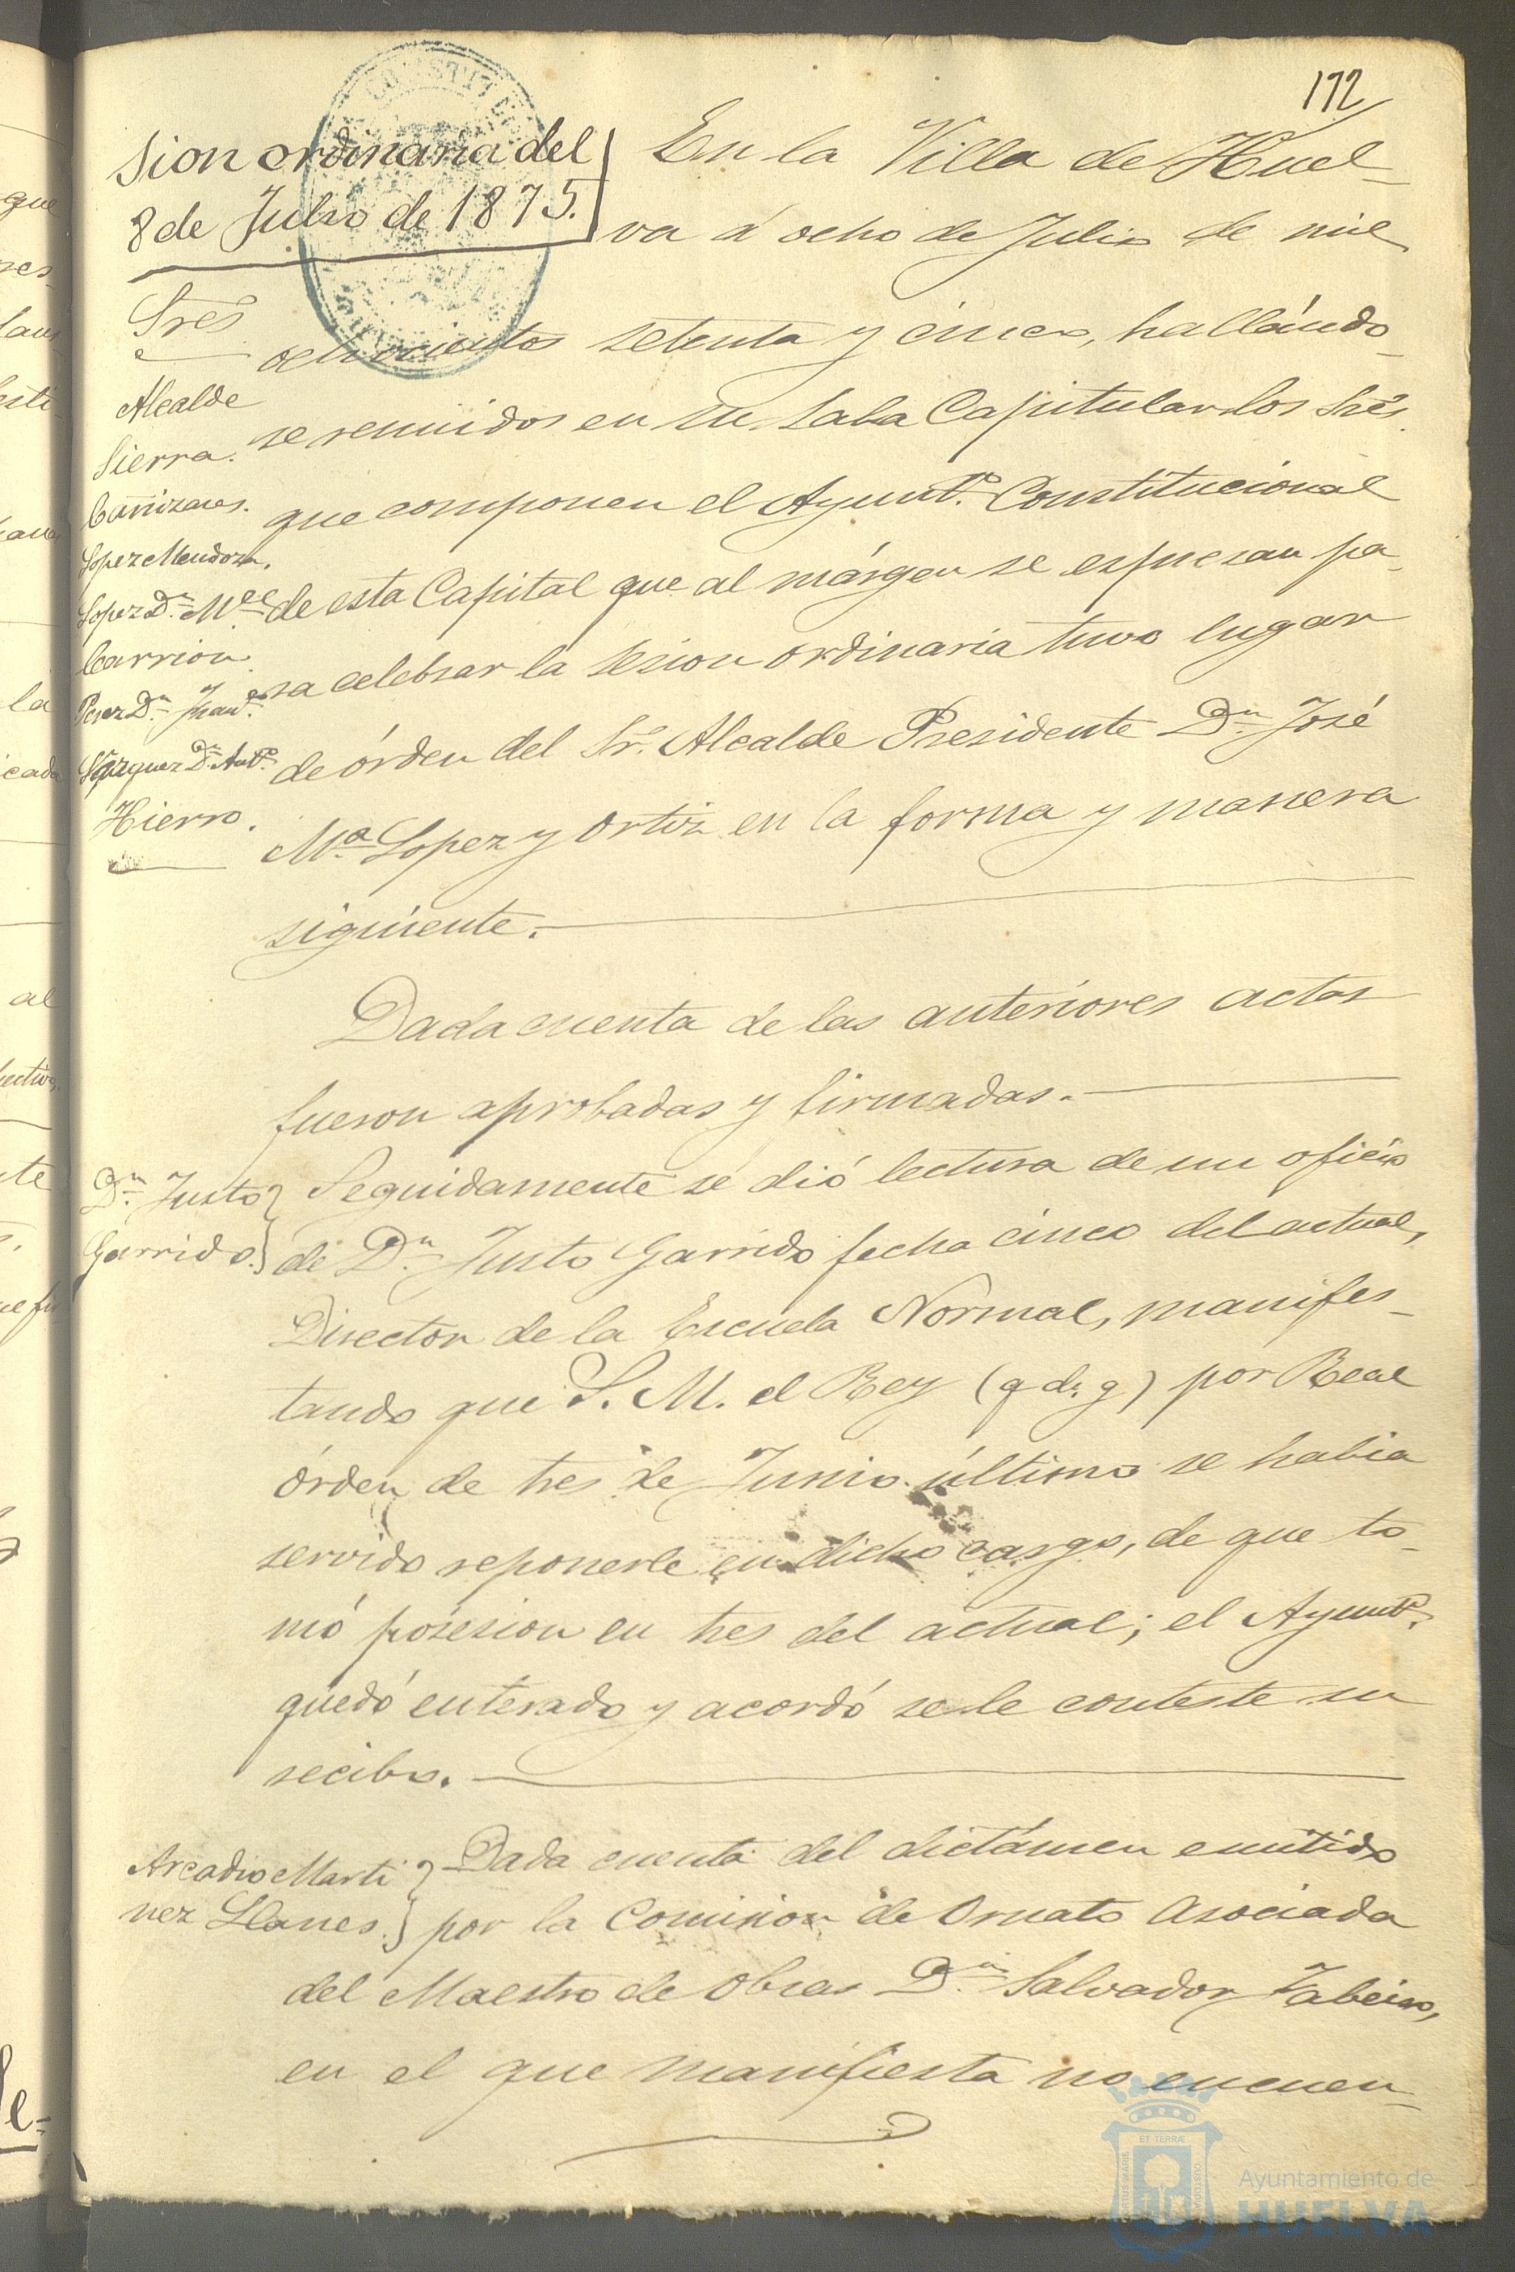 172
sion ordinaria del
8 de Julio de 1875.
Sres
Alcalde
Sierra.
Cañizares.
Lopez Mendoza.
Lopez Dn. Mel
Carrion.
Perez Dn. Juan
Vazquez Dn. Anto.
Hierro.
En la Villa de Huel-
va á ocho de Julio de mil
ochocientos setenta y cinco, hallándo-
se reunidos en su Sala Capitular los Sres.
que componen el Ayunto. Constitucional
de esta Capital que al márgen se espresan pa-
ra celebrar la sesion ordinaria tuvo lugar
de órden del Sr. Alcalde Presidente Dn. José
Ma. Lopez y Ortiz en la forma y manera
siguiente.
Dada cuenta de las anteriores actas
fueron aprobadas y firmadas.
Dn. Justo
Garrido.
Seguidamente se dió lectura de un oficio
de Dn. Justo Garrido fecha cinco del actual,
Director de la Escuela Normal, manifes-
tando que S. M. el Rey (q. d. g) por Real
órden de tres de Junio último se habia
servido reponerle en dicho cargo, de que to-
mó posesion en tres del actual; el Ayunto.
quedó enterado y acordó se le conteste su
recibo.
Arcadio Marti
nez Llanes.
Dada cuenta del dictámen emitido
por la Comision de Ornato asociada
del Maestro de obras Dn. Salvador
en el que manifiesta no encuen-
ET TERRÆ
Ayuntamiento de
HUELVA